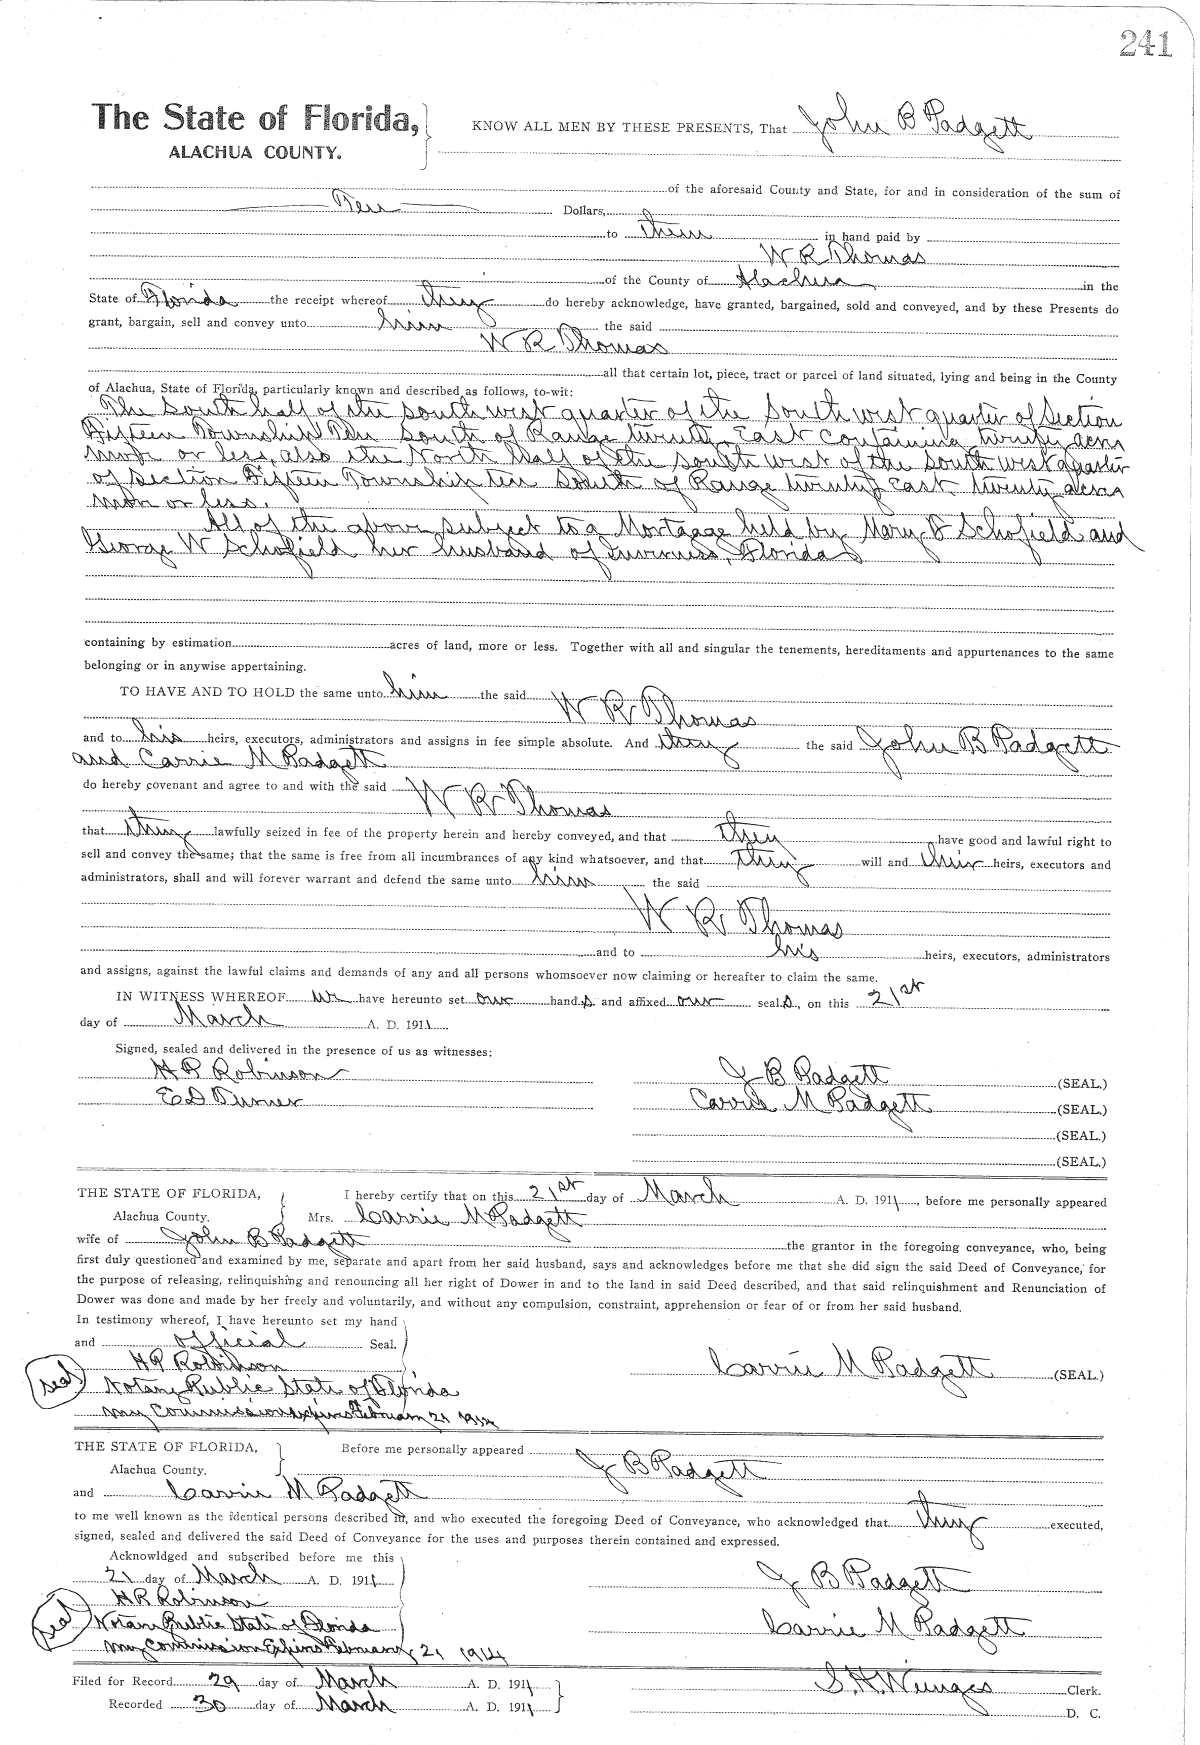 241
The State of Florida, KNOW ALL MEN BY THESE PRESENTS, That John B Padgett
ALACHUA COUNTY.
of the aforesaid County and State, for and in consideration of the sum of
Ten Dollars,
to them in hand paid by
W R Thomas
of the County of Alachua in the
State of Florida the receipt whereof they do hereby acknowledge, have granted, bargained, sold and conveyed, and by these Presents do
grant, bargain, sell and convey unto him the said
W R Thomas
all that certain lot, piece, tract or parcel of land situated, lying and being in the County
of Alachua, State of Florida, particularly known and described as follows, to-wit:
The South half of the south west quarter of the South west quarter of Section
Fifteen Township Ten South of Range twenty East containing twenty acres
more or less, also the North half of the south west of the south west quarter
of Section Fifteen Township ten South of Range twenty East twenty acres
more or less.
All of the above subject to a Mortgage held by Mary Schofield and
George W Schofield her husband of Inverness, Florida
containing by estimation acres of land, more or less. Together with all and singular the tenements, hereditaments and appurtenances to the same
belonging or in anywise appertaining.
TO HAVE AND TO HOLD the same unto him the said W R Thomas
and to his heirs, executors, administrators and assigns in fee simple absolute. And they the said John B Padgett
and Carrie M Padgett
do hereby covenant and agree to and with the said W R Thomas
that they lawfully seized in fee of the property herein and hereby conveyed, and that they have good and lawful right to
sell and convey the same; that the same is free from all incumbrances of any kind whatsoever, and that they will and their heirs, executors and
administrators, shall and will forever warrant and defend the same unto him the said
W R Thomas
and to his heirs, executors, administrators
and assigns, against the lawful claims and demands of any and all persons whomsoever now claiming or hereafter to claim the same.
IN WITNESS WHEREOF we have hereunto set our hands and affixed our seals, on this 21st
day of March A. D. 1911
Signed, sealed and delivered in the presence of us as witnesses:
H P Robinson J B Padgett (SEAL.)
E D Turner Carrie M Padgett (SEAL.)
(SEAL.)
(SEAL.)
THE STATE OF FLORIDA, I hereby certify that on this 21st day of March A. D. 1911, before me personally appeared
Alachua County. Mrs. Carrie M Padgett
wife of John B Padgett the grantor in the foregoing conveyance, who, being
first duly questioned and examined by me, separate and apart from her said husband, says and acknowledges before me that she did sign the said Deed of Conveyance, for
the purpose of releasing, relinquishing and renouncing all her right of Dower in and to the land in said Deed described, and that said relinquishment and Renunciation of
Dower was done and made by her freely and voluntarily, and without any compulsion, constraint, apprehension or fear of or from her said husband.
In testimony whereof, I have hereunto set my hand
and official Seal.
H P Robinson Carrie M Padgett (SEAL.)
seal Notary Public State of Florida
My Commission expires February 21 1914
THE STATE OF FLORIDA, Before me personally appeared J B Padgett
Alachua County.
and Carrie M Padgett
to me well known as the identical persons described in, and who executed the foregoing Deed of Conveyance, who acknowledged that they executed,
signed, sealed and delivered the said Deed of Conveyance for the uses and purposes therein contained and expressed.
Acknowldged and subscribed before me this
21 day of March A. D. 1911 J B Padgett
H P Robinson
seal Notary Public State of Florida Carrie M Padgett
My Commission Expires February 21 1914
Filed for Record 29 day of March A. D. 1911 Clerk.
Recorded 30 day of March A. D. 1911 D. C.